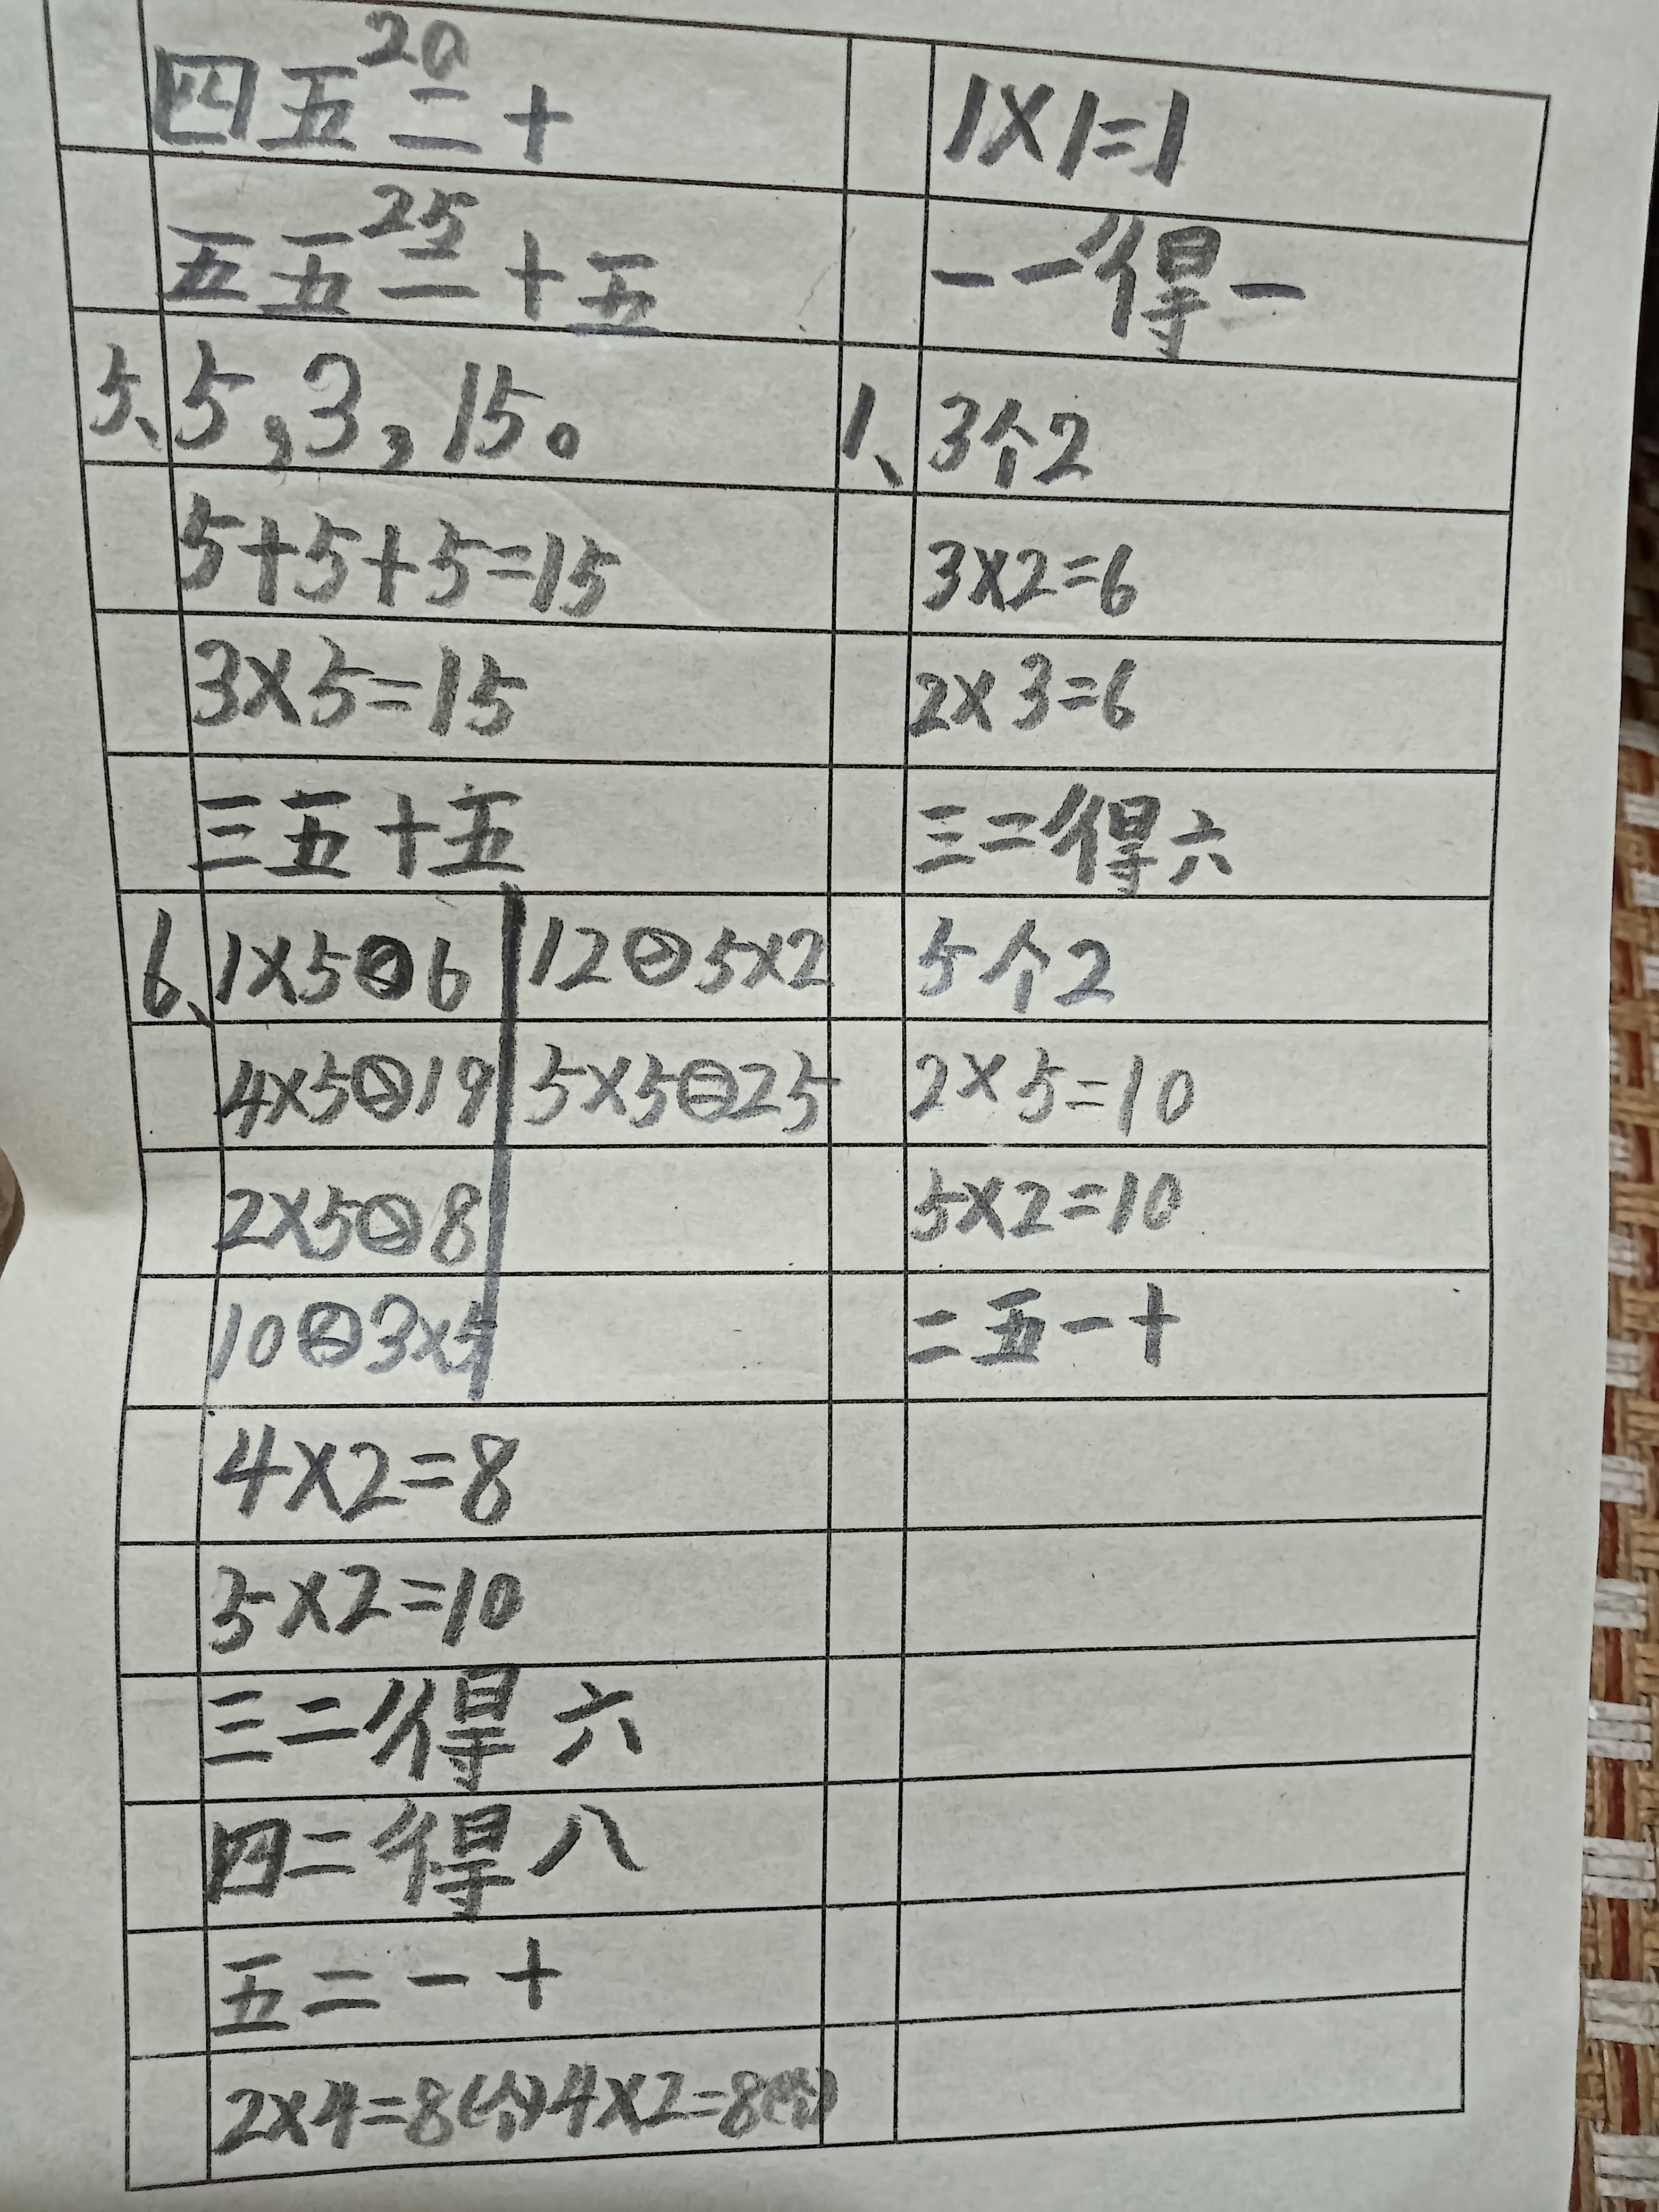 20
四五二十
25
五五二十五
5、5,3,15。
5+5+5=15
3×5=15
三五十五
6、1×5<6 12>5×2
4×5>19 5×5=25
2×5>8
10<3×5
4×2=8
5×2=10
三二得六
四二得八
五二一十
2×4=8(个)4×2=8(个)
1×1=1
一一得一
1、3个2
3×2=6
2×3=6
三二得六
5个2
2×5=10
5×2=10
二五一十